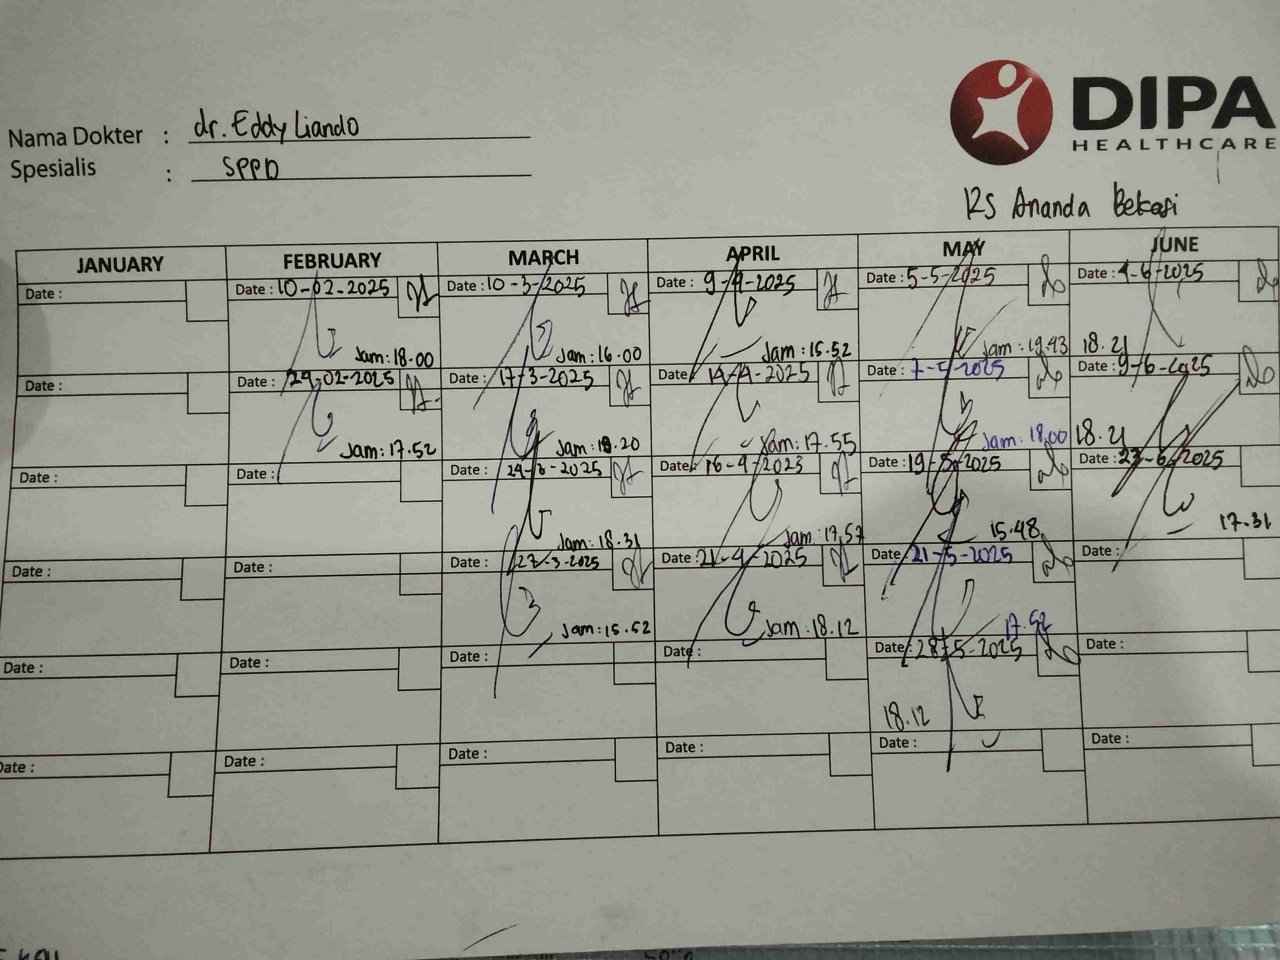 DIPA
HEALTHCARE
Nama Dokter : dr. Eddy Liando
Spesialis : SPPD
RS Ananda Bekasi
JANUARY FEBRUARY MARCH APRIL MAY JUNE
Date : Date : 10-02-2025 Date : 10-3-2025 Date : 9-4-2025 Date : 5-5-2025 Date : 4-6-2025
Jam: 18.00 Jam: 16.00 Jam: 15.52 Jam: 19.43 18.21
Date : Date : 24-02-2025 Date : 17-3-2025 Date : 14-4-2025 Date : 7-5-2025 Date : 9-6-2025
Jam: 17.52 Jam: 18.20 Jam: 17.55 Jam: 18.00 18.21
Date : Date : Date : 24-3-2025 Date : 16-4-2023 Date : 19-5-2025 Date : 23-6-2025
Jam: 18.31 Jam: 17.57 15.48 17.31
Date : Date : Date : 27-3-2025 Date : 21-4-2025 Date : 21-5-2025 Date :
Jam: 15.52 Jam: 18.12 17.52
Date : Date : Date : Date : Date : 28-5-2025 Date :
18.12
Date : Date : Date : Date : Date : Date :